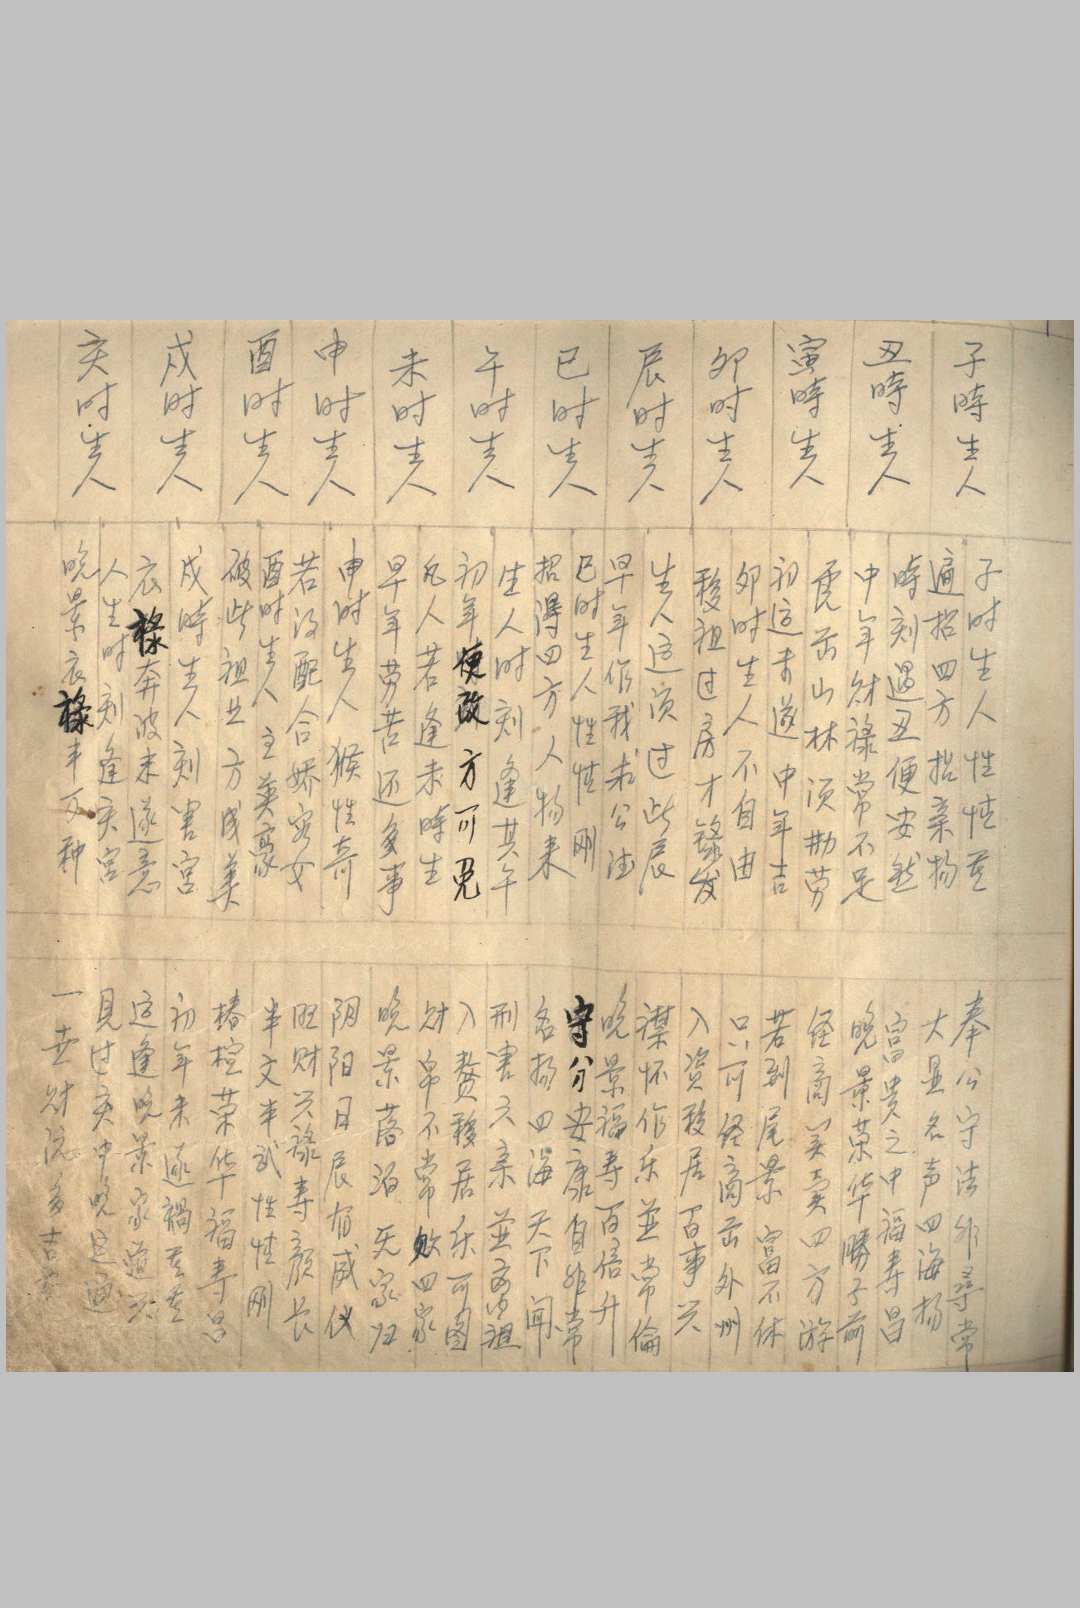 子時生人
丑時生人
寅時生人
卯时生人
辰时生人
巳时生人
午时生人
未时生人
申时生人
酉时生人
戍时生人
亥时生人
子时生人性性
遍招四方招亲物
時刻遇丑便安然
中年財祿常不足
虎出山林须勤劳
初运未遂中年吉
卯时生人不自由
移祖过房才發
生人运须过此辰
早年作求公
巳时生人性性剛
招得四方人物来
生人时刻逢其午
初年方可免
凡人若逢未時生
早年劳苦还多事
申时生人猴性奇
若没配合娇容女
酉时生人主英豪
破些祖业方成美
戍時生人刻害宫
衣祿奔波未遂意
人生时刻逢亥宫
晚景衣祿丰万种
奉公守法非尋常
大显名声四海扬
富贵之中福寿昌
晚景荣华勝于前
经商买卖四方游
若到尾景富不休
只可经商出外州
入資移居百事兴
襟怀作乐並常倫
晚景福寿百倍升
守分安康自非常
名揚四海天下聞
刑害六亲並离祖
入赘移居乐可图
财帛不常败四家
晚景落泊无家归
阴阳日辰有威仪
旺财兴祿寿颜长
半文半武性性剛
椿萱荣华福寿昌
初年未遂禍
运逢晚景家道
見过亥中晚运通
一世财多吉